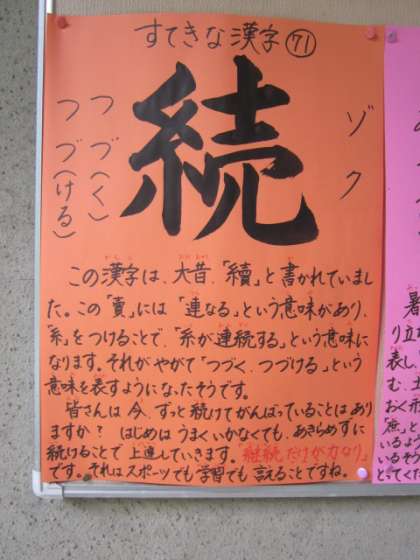 すてきな漢字 71
続
ゾク
つづ(く)
つづ(ける)
この漢字は、大昔、「續」と書かれていまし
た。この「賣」には「連なる」という意味があり、
「糸」をつけることで、「糸が連続する」という意味に
なります。それがやがて「つづく、つづける」という
意味を表すようになったそうです。
皆さんは今、ずっと続けてがんばっていることはあり
ますか？ はじめはうまくいかなくても、あきらめずに
続けることで上達していきます。「継続だけが力なり」
です。それはスポーツでも学習でも言えることですね。
暑
り立ち
表し、
む、土
おく示
庶」と
いるよう
いるそう
とってくだ